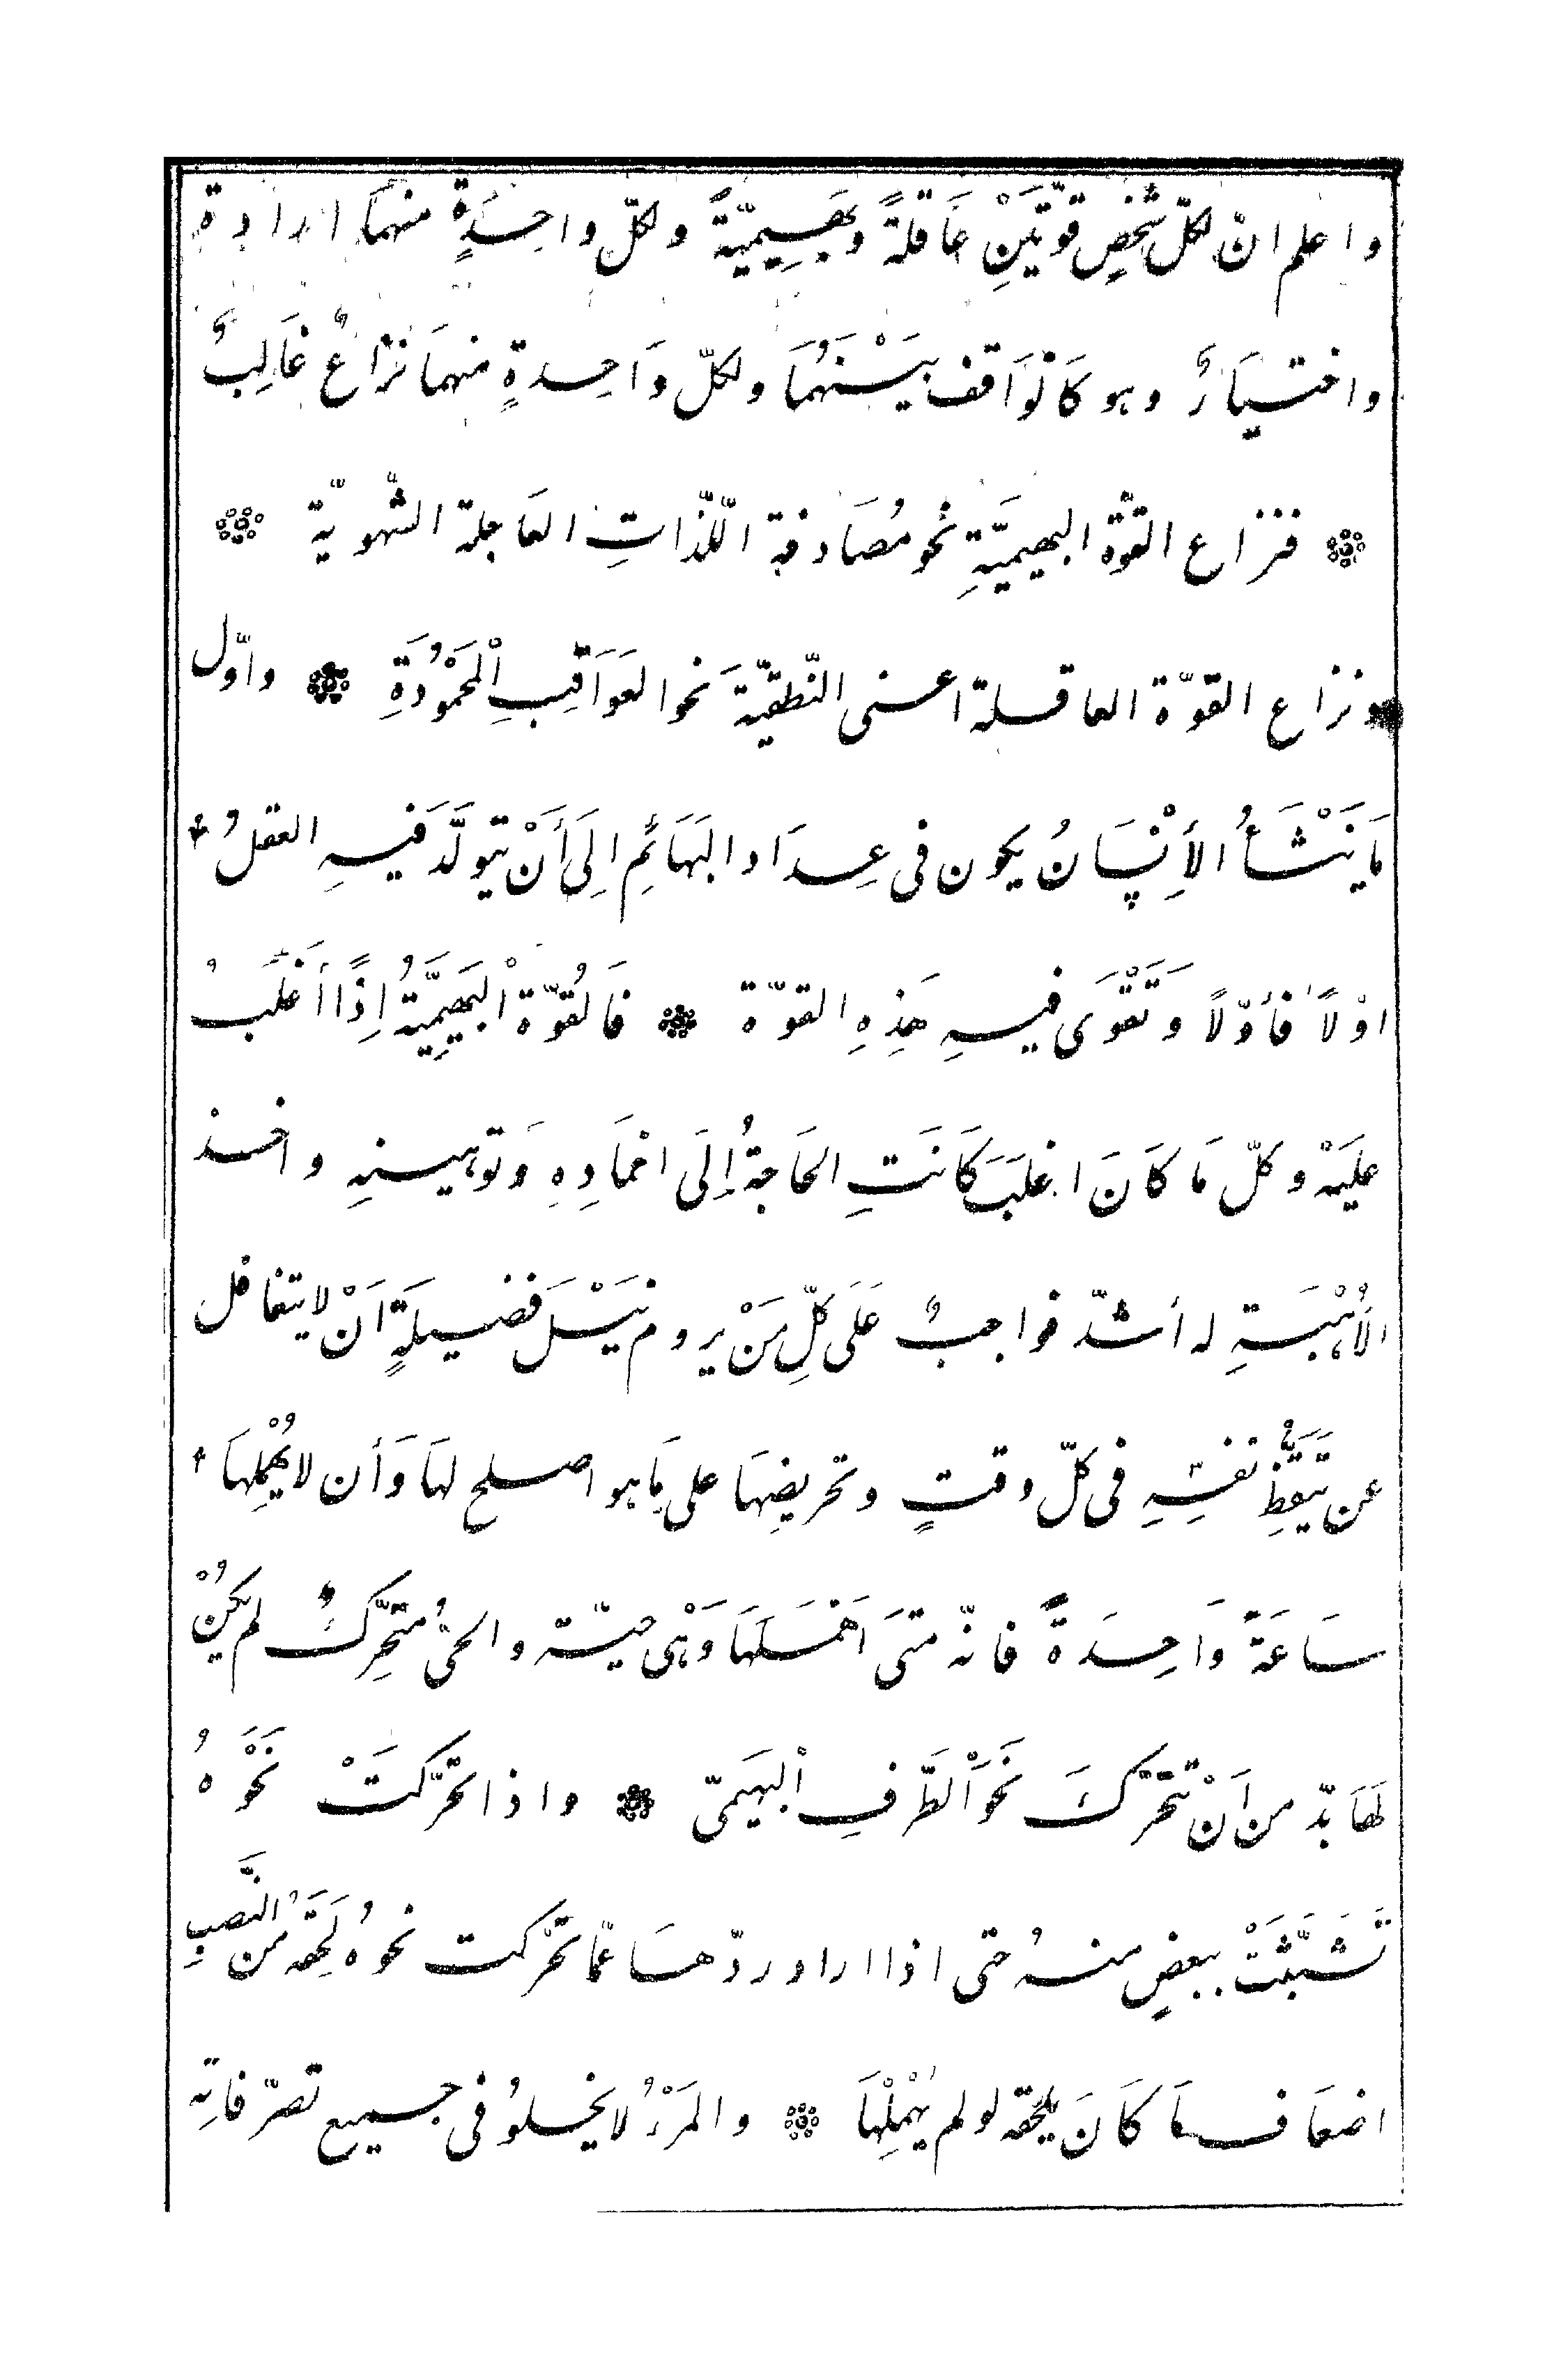 واعلم انّ لكلّ شخصٍ قوّتَيْنِ عَاقلةً وبَهِيمِيّةً ولكلّ واحِدَةٍ منهمَا ارادة
واختيَارٌ وہو كَالوَاقف بَيْنَهُمَا ولكلّ وَاحِدةٍ منهمَا نزاعٌ غَالِبٌ
❊ فنزاع القوّة البهيميَّةِ نحو مُصَادفة اللّذاتِ العَاجلة الشّهويّة ❊
ونزاع القوّة العاقلة اعنى النّطقيّة نَحو العَوَاقِبِ الْمَحْمُوْدَةِ ❊ واوّل
مَا يَنْشَأُ الأِنْسَانُ يكون فى عِدَاد البَهَائِمِ اِلَى أَنْ يتولَّدَ فيهِ العقلُ
اوّلاً فأوّلاً وَتَقْوَى فيهِ هَذِهِ القوّة ❊ فَالقُوّة الْبَهِيمِيَّةُ اِذًا أَغْلَبُ
عليَهْ وكلّ مَا كَانَ اغلَبَ كَانَتِ الحَاجةُ اِلَى اخمَادِهِ وَتوہينہِ واخذ
الأُہْبَةِ لہ أشدّ فواجبٌ عَلَى كلِّ مَنْ يروم نَيْلَ فَضيلَةٍ اَنْ لا يتغافل
عن تَيَقُّظِ نفسِهِ فى كلّ وقتٍ وتحريضِهَا على مَا ہو اصلح لهَا وَأن لا يُهْمِلهَا
سَاعَةً وَاحِدَةً فانّہ متىَ اَهْمَلَهَا وَہْىَ حيّة والحىُّ متحَرِّكٌ لم يكُنْ
لهَا بدّ من اَنْ تتحَرّكَ نَحْوَ الطَّرفِ الْبَهيَمىّ ❊ واذا تحَرّكَتْ نَحْوَهُ
تَشَبَّثَتْ ببعضٍ منہُ حتى اذا اراد ردّهَا عمّا تحرّكت نحوهُ لَحِقَهُ من النَّصَبِ
اضعَاف مَا كَانَ يلحقہ لو لم يُهْمِلْهَا ❊ والمَرْءُ لا يخلوُ فى جميع تصرّفاتِہ